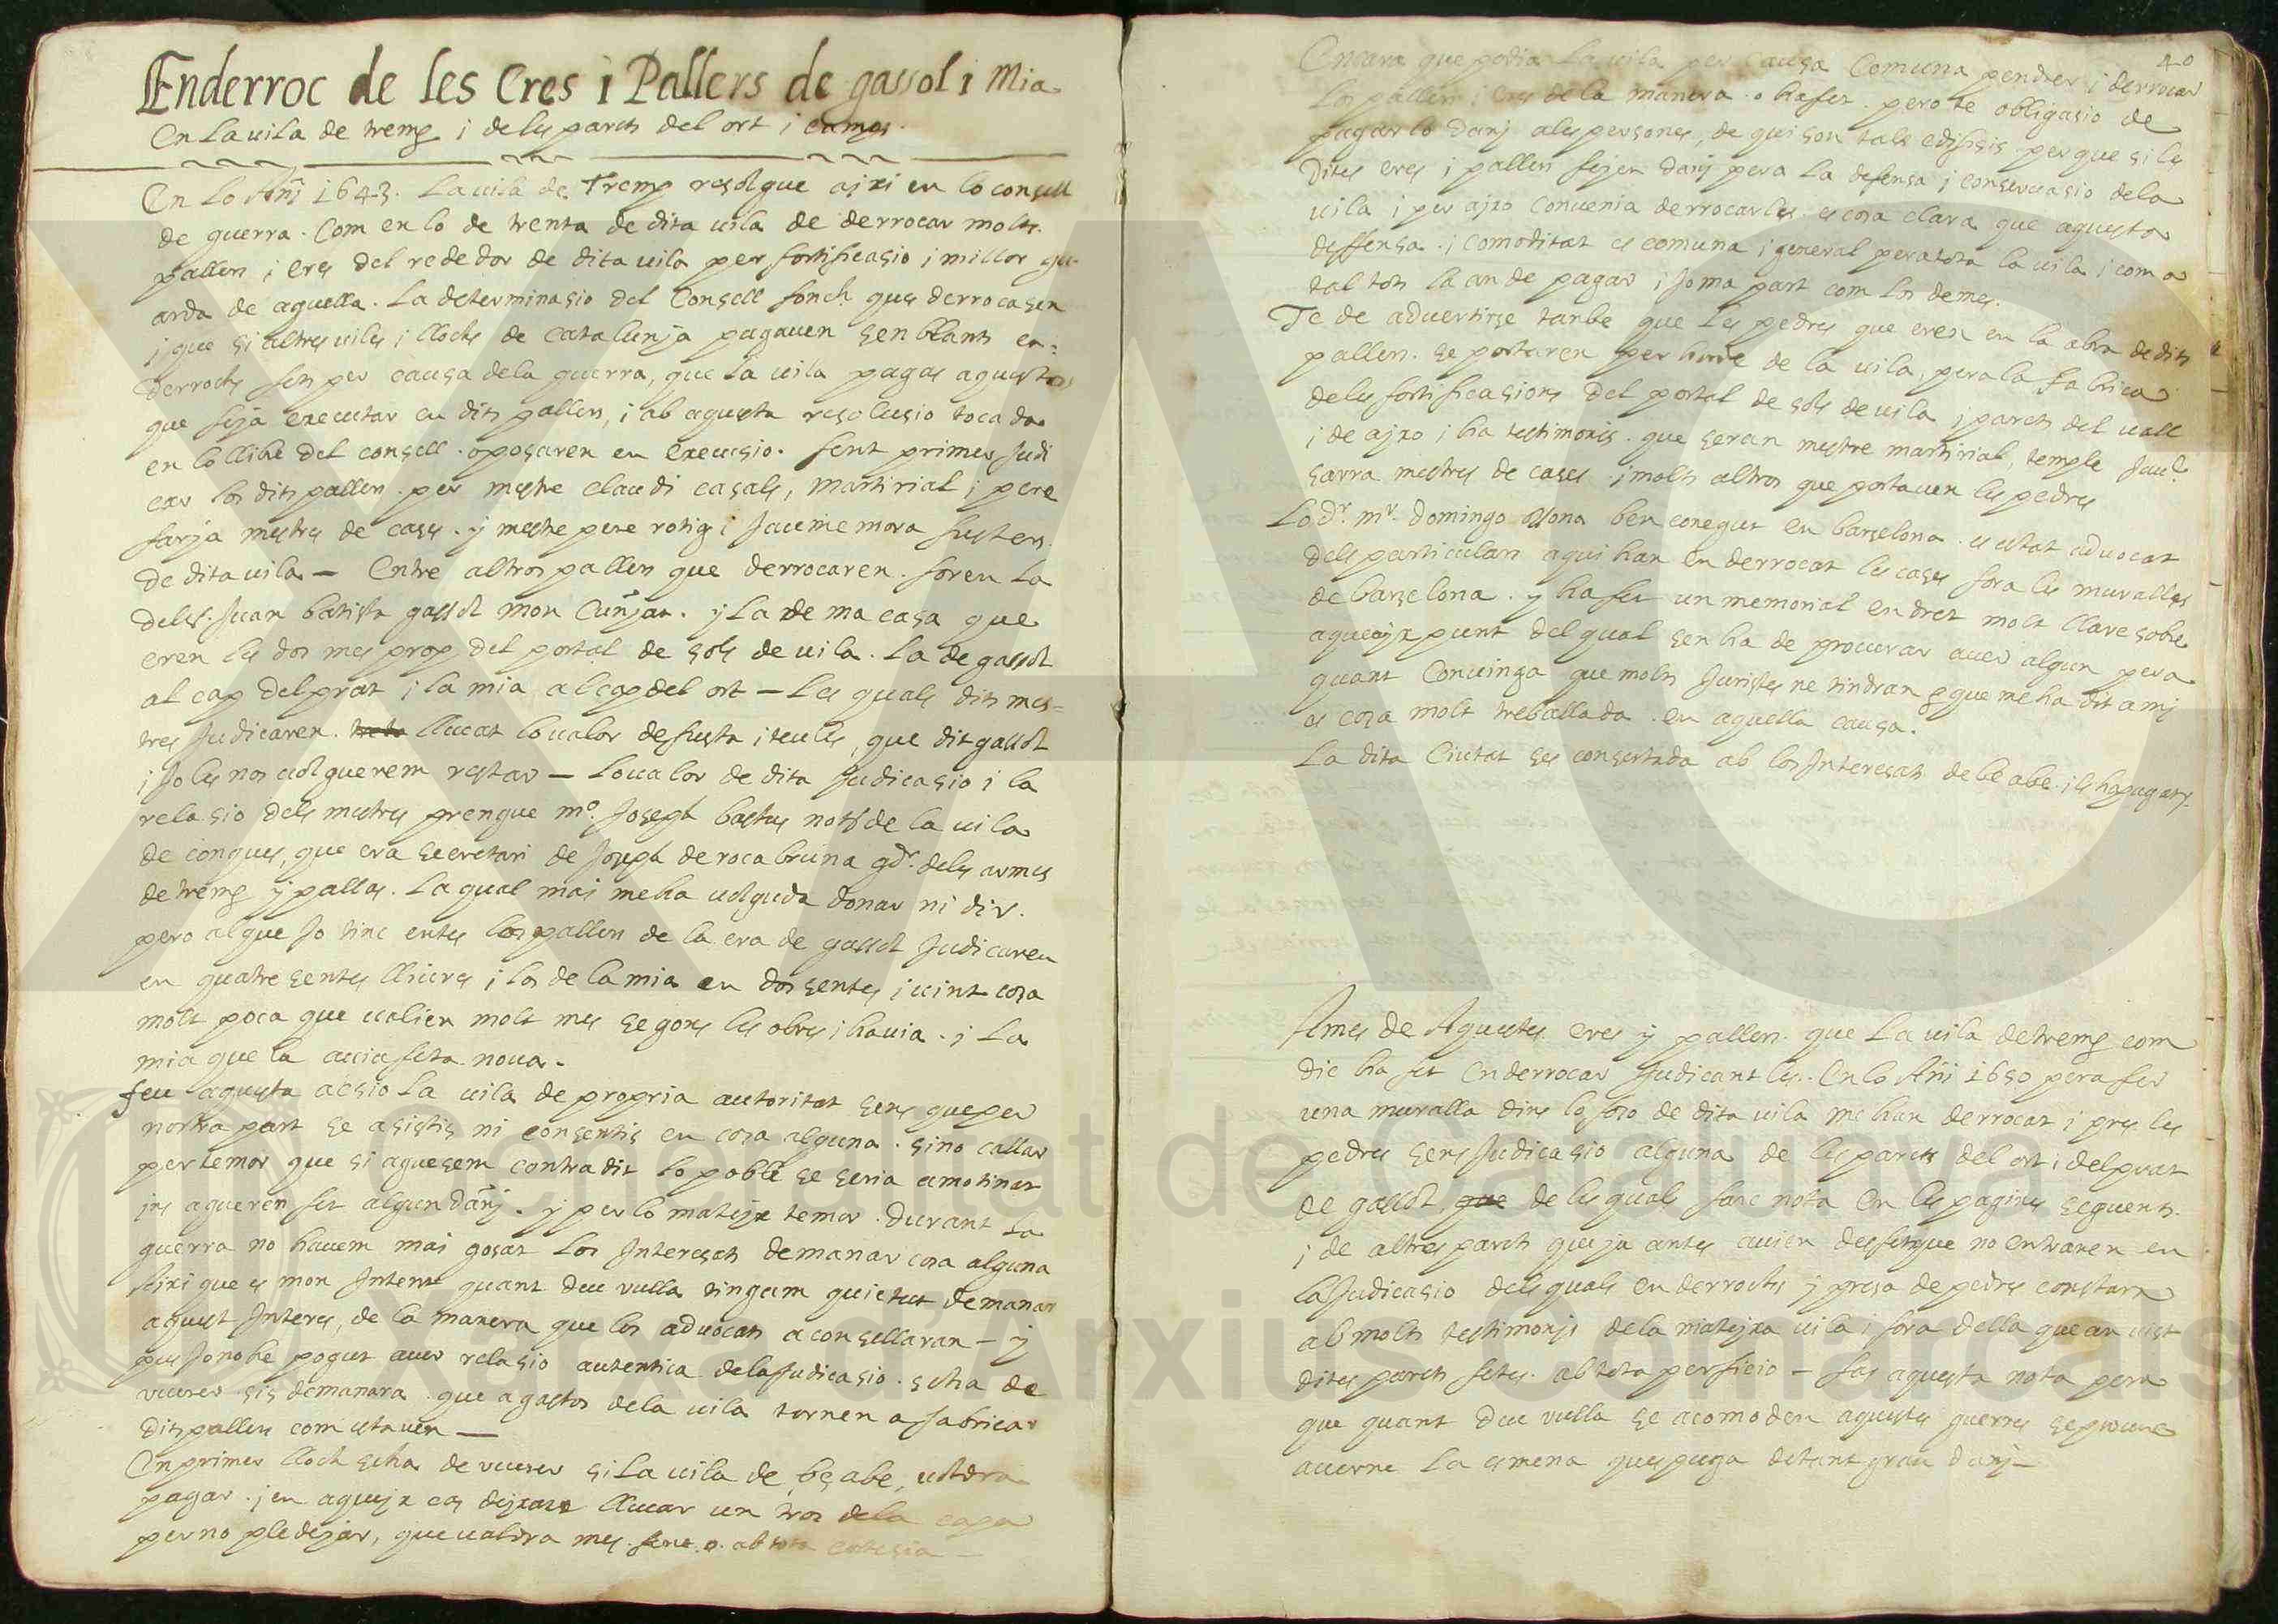 Enderroc de les Eres i Pallers de gassol i Mia
En la uila de tremp i de les parets del ort i camps.
En lo Añj 1643. la uila de Tremp resolgue aixi en lo consell
de guerra. Com en lo de trenta de dita uila de derrocar molts.
pallers i eres del rededor de dita uila per fortificasio i millor gu-
arda de aquella. la determinasio del Consell fonch ques derrocasen
i que si altres uiles i llochs de catalunja pagauen senblants en=
derrochs fets per causa dela guerra, que la uila pagas aquestos
que feja executar en dits pallers, i ab aquesta resolusio tocada
en lo llibre del consell. oposaren en execusio. fent primer Judi
car los dits pallers. per mestre claudi casals, Martirial i pere
farja mestres de cases. y mestre pere rotig i Jaume mora fusters.
de dita uila — Entre altros pallers que derrocaren. foren la
dels. Juan batista gassol mon Cuñjat. y la de ma casa que
eren les dos mes prop del portal de sols de uila. la de gassol
al cap del prat i la mia al cap del ort — les quals dits mes=
tres Judicaren. lleuat lo ualor de fusta i teules, que dit gassol
i Jo les nos uolguerem restar — lo ualor de dita Judicasio i la
relasio dels mestres prengue mº. Joseph bastus notᵗ de la uila
de congues, que era secretari de Joseph de rocabruna gdʳ. deles armes
de tremp y pallas. la qual mai me ha uolguda donar ni dir.
pero al que Jo tinc entes los pallers de la era de gassol Judicaren
en quatre sentes lliures i los de la mia en dos sentes i uint cosa
molt poca que ualien molt mes segons les obres i hauia. i la
mia que la auia feta noua.
feu aquesta acsio la uila de propria autoritat sens que per
nostra part se asistis ni consentis en cosa alguna. sino callar
per temor que si aguesem contradit lo poble se seria amotinat
ins agueren fet algun dañj. y per lo mateix temor. durant la
guerra no hauem mai gosat los Interesats demanar cosa alguna
Aixi que es mon Intent quant deu vulla tingam quietut demanar
aquest Interes, de la manera que los aduocats aconsellaran — y
pus Jo no he pogut auer relasio autentica dela Judicasio. se ha de
veurer sis demanara. que a gastos dela uila tornen a fabricar
dits pallers com estauen —
En primer lloch se ha de veurer si la uila de be abe, uoldra
pagar. i en aqueix cas deixarse lleuar un tros dela
per no pledejar, que ualdra mes. ab tota cortesia —
40
Encara que podia la uila per causa Comuna pendrer i derrocar
los pallers i eres de la manera. o ha fet. pero te obligasio de
pagar lo danj ales persones, de qui son tals edifisis perque si les
dites eres i pallers fejen danj pera la defensa i conseruasio dela
uila i per ajxo Conuenia derrocarles. es cosa clara que aquesta
deffensa. i comoditat es comuna i general pera tota la uila i com a
tal tots la an de pagar i Jo ma part com los demes.
Te de aduertirse tanbe que les pedres que eren en la obra de dits
pallers. se portaren per horde de la uila, pera la fabrica
deles fortificasions del portal de sols de uila i parets del uall
i de ajxo i ha testimonis. que seran mestre martirial, temple
sarra mestres de cases i molts altros que portauen les pedres
Lo dʳ. mʳ. domingo ossona ben conegut en barselona. es estat aduocat
dels particulars aqui han enderrocat les cases fora les muralles
de barselona. y ha fet un memorial en dret molt llarc sobre
aqueix punt del qual sen ha de procurar auer algun pera
quant Conuinga que molts Juristes ne tindran que me ha dit amj
es cosa molt treballada. en aquella causa.
La dita Ciutat ses consertada ab los Interesats de be abe. i les ha pagats.
Ames de Aquestes eres y pallers. que la uila de tremp com
dic ha fet Enderrocar Judicantles. En lo Añj 1650 pera fer
una muralla dins lo foso de dita uila me han derrocat i pres les
pedres sens Judicasio alguna de les parets del ort i del prat
de gassol, que de les quals fare nota En les pagines seguents.
i de altres parets que ja antes auien desfet que no entraren en
la Judicasio dels quals enderrochs y presa de pedres constara
ab molts testimonjs dela matejxa uila i fora della que an uist
dites parets fetes. ab tota perficio — fas aquesta nota pera
que quant deu vulla se acomoden aquestes guerres se procure
auerne la esmena ques puga de tant gran danj —